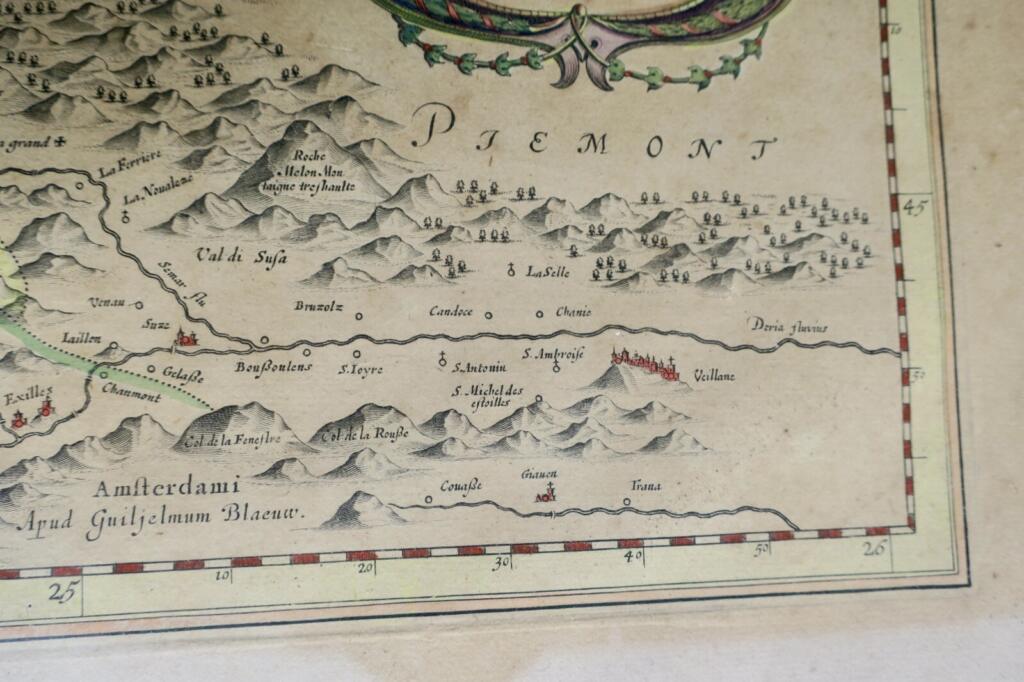 PIEMONT
grand
La Ferriere
La Noualeze
Roche
Melon Mon
taigne treshaulte
45
Val di Susa
Semar flu
La Selle
Venau
Bruzolz
Candoce
Chanie
Doria fluvius
Suze
Laillon
Boußoulens
S. Ioyre
S. Antonin
S. Ambroise
Veillane
50
Gelaße
Chaumont
Exilles
S. Michel des
estoilles
Col de la Fenestre
Col de la Rouße
Amsterdami
Apud Guiljelmum Blaeuw.
Couaße
Giauen
Trana
25
10
20
30
40
50
26
10